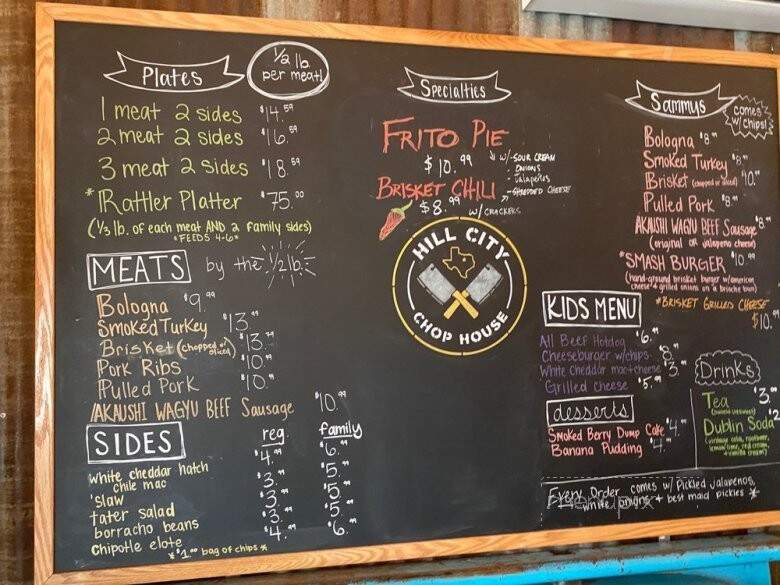 Plates
1/2 lb
per meat!
1 meat 2 sides $14.59
2 meat 2 sides $16.59
3 meat 2 sides $18.59
*Rattler Platter $75.00
(1/3 lb. of each meat AND 2 family sides)
*FEEDS 4-6*
MEATS by the 1/2 lb.
Bologna $9.99
Smoked Turkey $13.99
Brisket (chopped or sliced) $13.99
Pork Ribs $10.99
Pulled Pork $10.99
AKAUSHI WAGYU BEEF Sausage $10.99
SIDES reg. family
white cheddar hatch $4.99 $6.99
chile mac
'slaw $3.99 $5.99
tater salad $3.99 $5.99
borracho beans $3.99 $5.99
chipotle elote $4.99 $6.99
*$1.00 bag of chips*
Specialties
FRITO PIE
$10.99 w/-SOUR CREAM
-ONIONS
-Jalapeños
-SHREDDED CHEESE
BRISKET CHILI
$8.99 w/CRACKERS
HILL CITY
CHOP HOUSE
Sammys
comes
w/chips!
Bologna $8.99
Smoked Turkey $8.99
Brisket (chopped or sliced) $10.99
Pulled Pork $8.99
AKAUSHI WAGYU BEEF Sausage $8.99
(original OR jalapeno cheese)
*SMASH BURGER $10.99
(hand-ground brisket burger w/american
cheese & grilled onions on a brioche bun)
*BRISKET GRILLED CHEESE
$10.99
KIDS MENU
All Beef Hotdog $6.99
Cheeseburger w/chips $8.99
White cheddar mac+cheese $3.99
Grilled cheese $5.99
desserts
Smoked Berry Dump Cake $4.99
Banana Pudding $4.99
Drinks
Tea $3.
Dublin Soda $2
(vintage cola, rootbeer,
lemon lime, red cream,
+vanilla cream)
Every Order comes w/ Pickled Jalapenos,
white onions + best maid pickles *